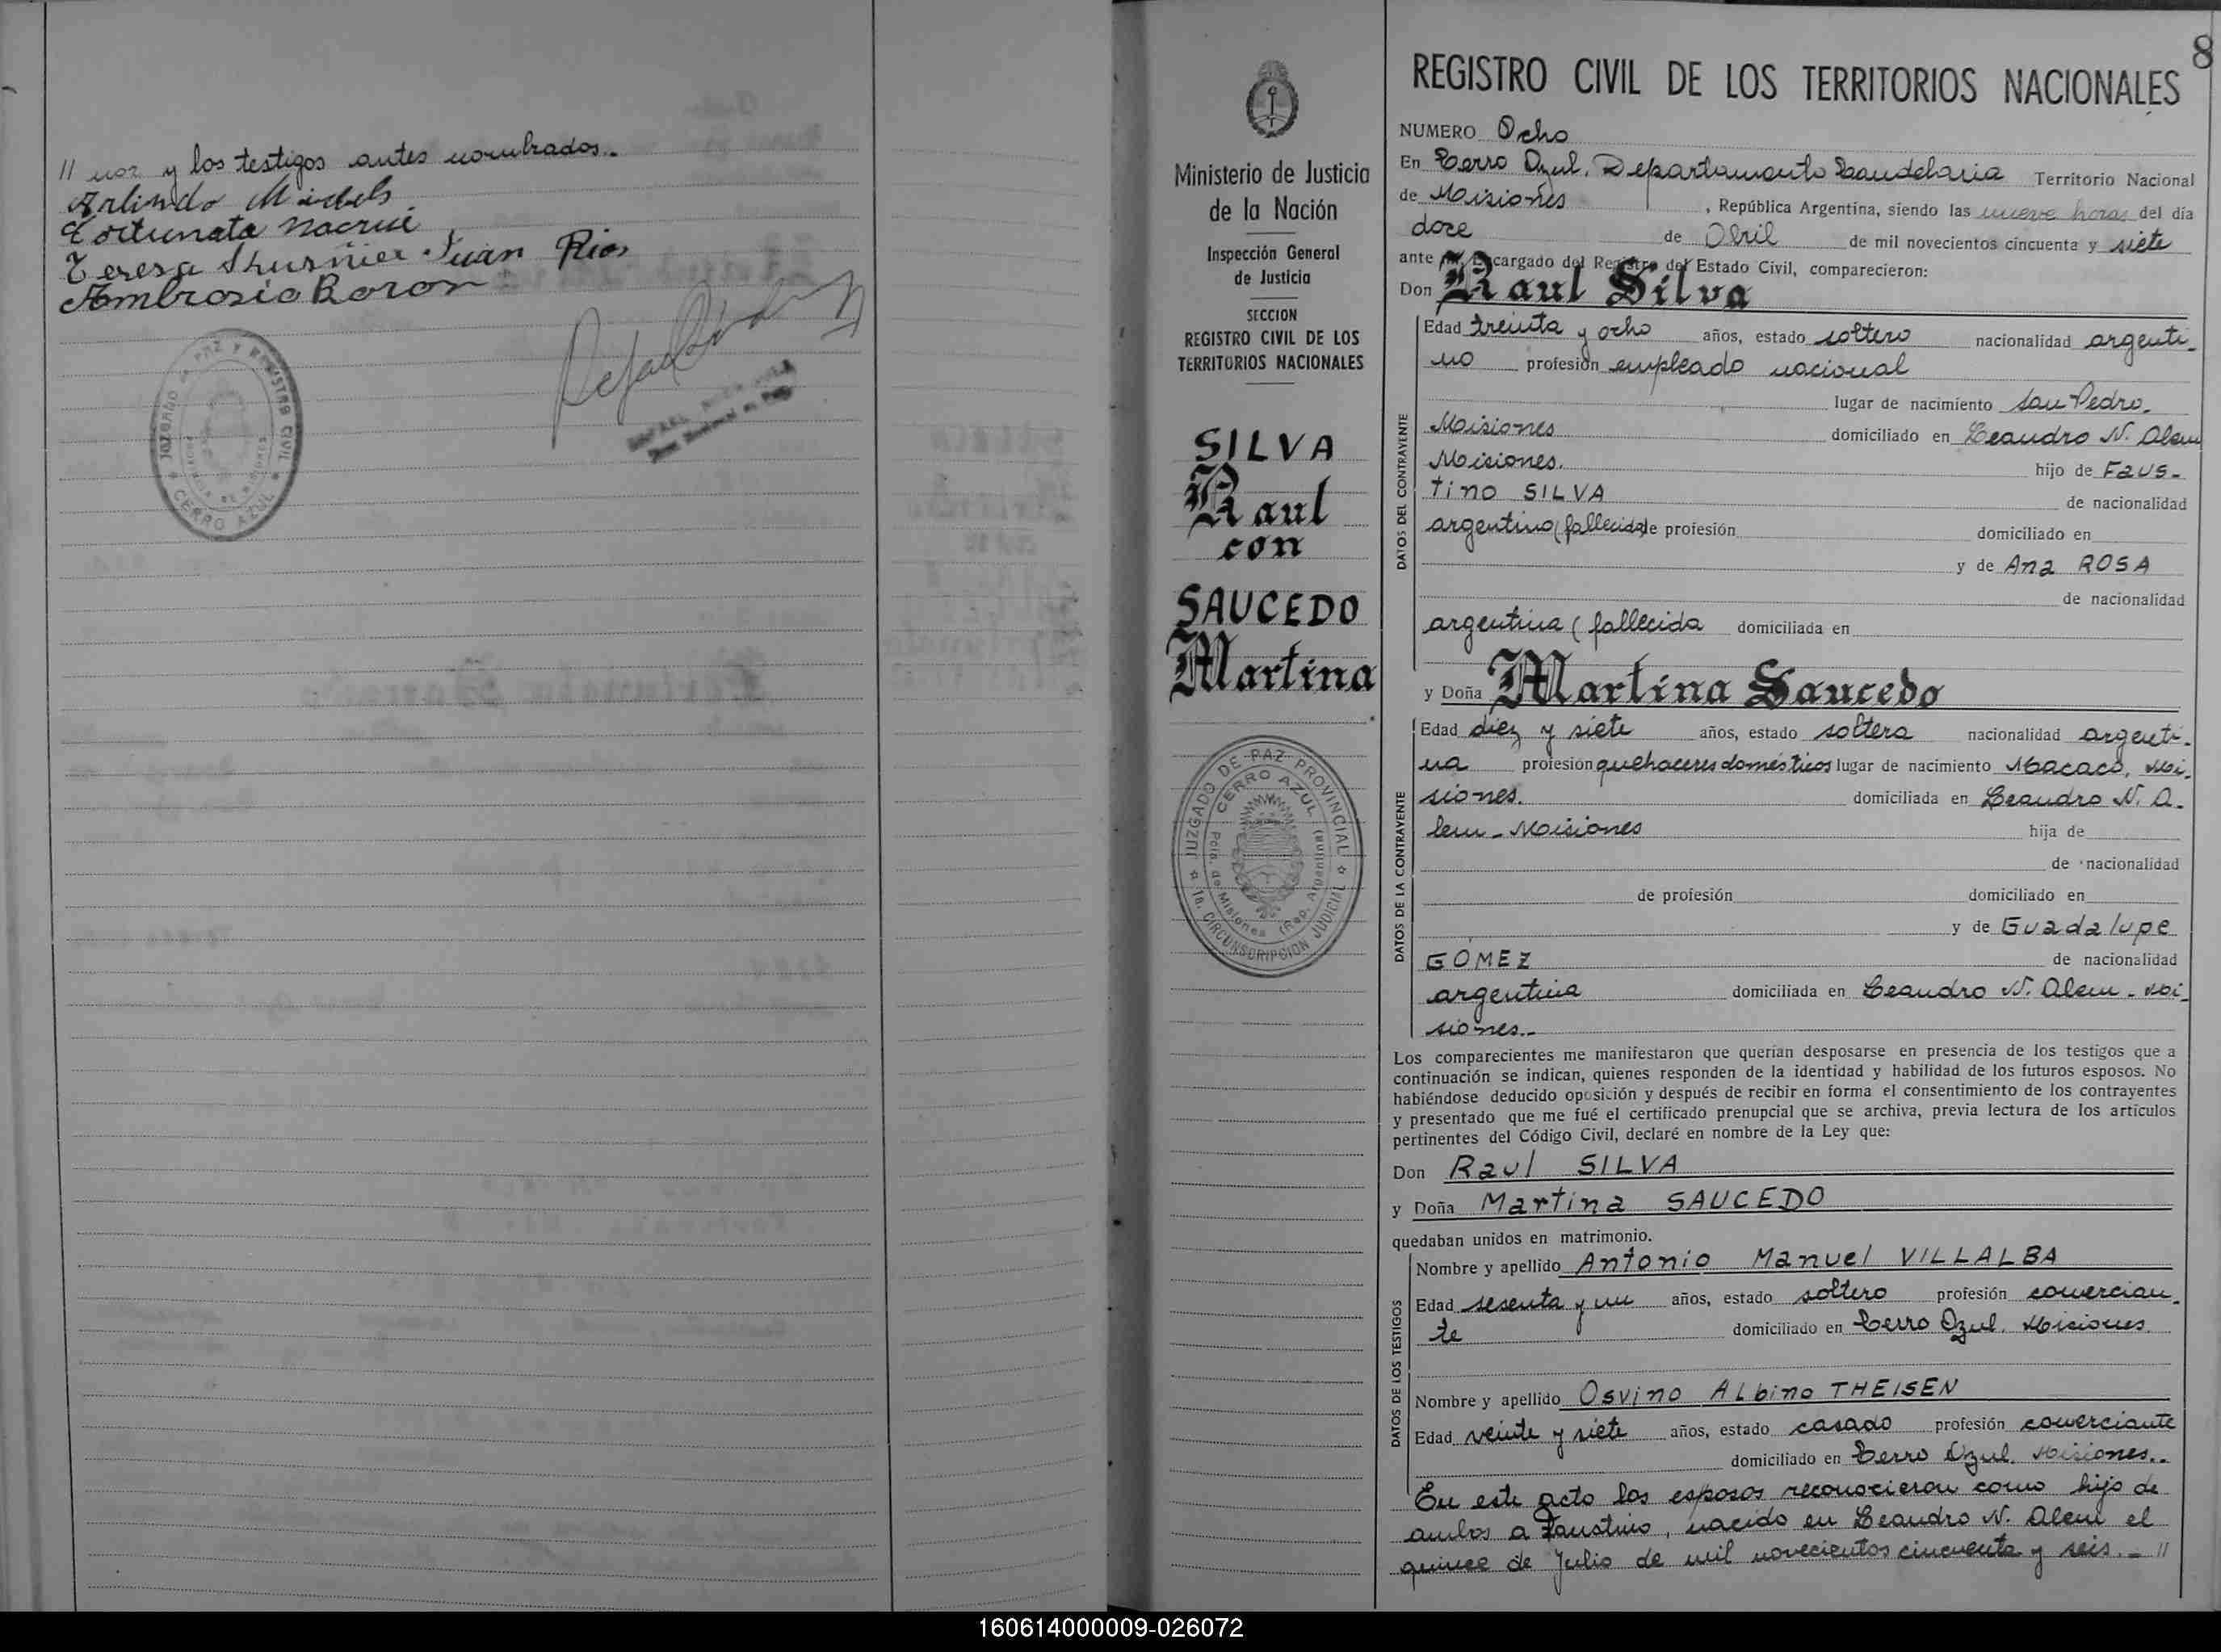 // nor y los testigos antes nombrados.-
Arlindo
Fortunata
Teresa Juan Rios
Ambrosio Boron
JUZGADO DE PAZ Y REGISTRO CIVIL
CERRO AZUL
8
REGISTRO CIVIL DE LOS TERRITORIOS NACIONALES
Ministerio de Justicia
de la Nación
Inspección General
de Justicia
SECCION
REGISTRO CIVIL DE LOS
TERRITORIOS NACIONALES
SILVA
Raul
con
SAUCEDO
Martina
JUZGADO DE PAZ PROVINCIAL
1a. CIRCUNSCRIPCION JUDICIAL
CERRO AZUL
Pcia. de Misiones (Rep. Argentina)
NUMERO Ocho
En Cerro Azul, Departamento Candelaria Territorio Nacional
de Misiones , República Argentina, siendo las nueve horas del día
doze de Abril de mil novecientos cincuenta y siete
ante mí, Encargado del Registro del Estado Civil, comparecieron:
Don Raul Silva
DATOS DEL CONTRAYENTE
Edad treinta y ocho años, estado soltero nacionalidad argenti-
no profesión empleado nacional
lugar de nacimiento San Pedro.
Misiones domiciliado en Leandro N. Alem
Misiones. hijo de Faus-
tino SILVA de nacionalidad
argentino (fallecido) de profesión domiciliado en
y de Ana ROSA
de nacionalidad
argentina (fallecida domiciliada en
y Doña Martina Saucedo
DATOS DE LA CONTRAYENTE
Edad diez y siete años, estado soltera nacionalidad argenti-
na profesión quehaceres domésticos lugar de nacimiento Macaco, Mi-
siones. domiciliada en Leandro N. A-
lem - Misiones hija de
de nacionalidad
de profesión domiciliado en
y de Guadalupe
GÓMEZ de nacionalidad
argentina domiciliada en Leandro N. Alem - Mi-
siones.-
Los comparecientes me manifestaron que querían desposarse en presencia de los testigos que a
continuación se indican, quienes responden de la identidad y habilidad de los futuros esposos. No
habiéndose deducido oposición y después de recibir en forma el consentimiento de los contrayentes
y presentado que me fué el certificado prenupcial que se archiva, previa lectura de los artículos
pertinentes del Código Civil, declaré en nombre de la Ley que:
Don Raul SILVA
y Doña Martina SAUCEDO
quedaban unidos en matrimonio.
DATOS DE LOS TESTIGOS
Nombre y apellido Antonio Manuel VILLALBA
Edad sesenta y un años, estado soltero profesión comercian-
te domiciliado en Cerro Azul. Misiones.
Nombre y apellido Osvino Albino THEISEN
Edad veinte y siete años, estado casado profesión comerciante
domiciliado en Cerro Azul. Misiones.-
En este acto los esposos reconocieron como hijo de
ambos a Faustino, nacido en Leandro N. Alem el
quince de Julio de mil novecientos cincuenta y seis.- //
160614000009-026072